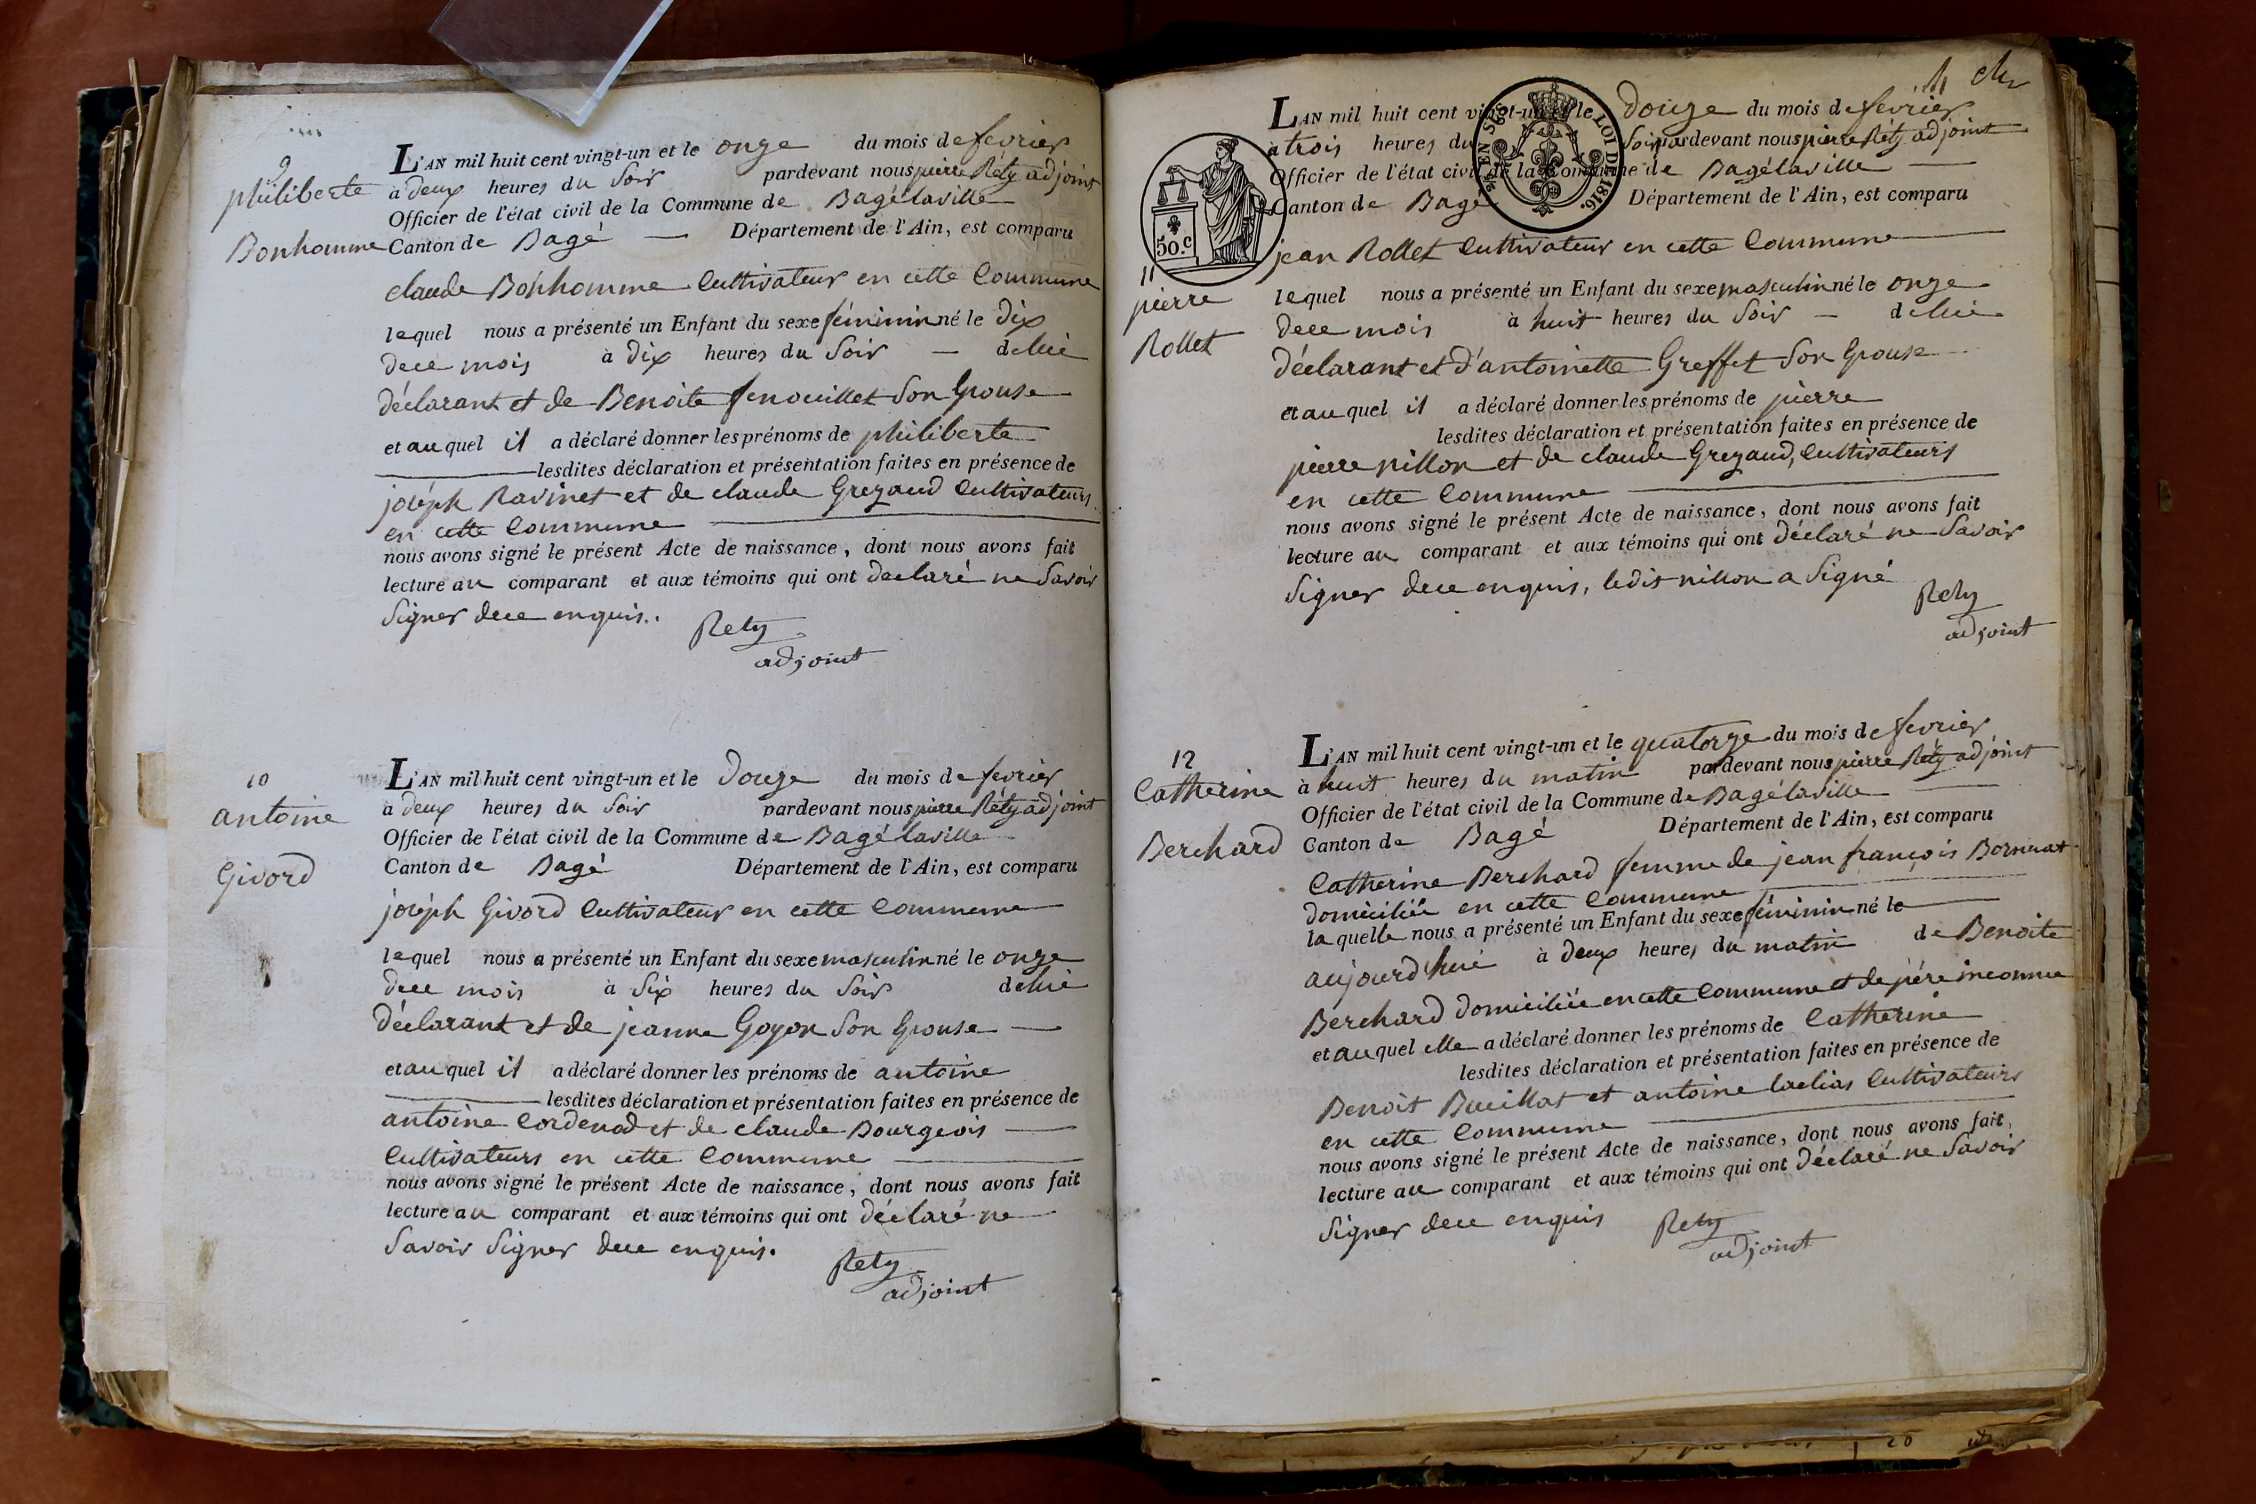 9
philiberte
Bonhomme
L'AN mil huit cent vingt-un et le onze du mois de fevrier
à deux heures du Soir pardevant nous pierre Réty adjoint
Officier de l'état civil de la Commune de Bagélaville
Canton de Bagé Département de l'Ain, est comparu
claude Bonhomme Cultivateur en cette Commune
lequel nous a présenté un Enfant du sexe féminin né le dix
dece mois à dix heures du Soir de lui
déclarant et de Benoite fenouillet Son Epouse
et au quel il a déclaré donner les prénoms de philiberte
lesdites déclaration et présentation faites en présence de
joseph Ravinet et de claude Grezaud Cultivateurs
en cette Commune
nous avons signé le présent Acte de naissance, dont nous avons fait
lecture au comparant et aux témoins qui ont déclaré ne Savoir
Signer dece enquis.
Rety
adjoint
10
antoine
Givord
L'AN mil huit cent vingt-un et le Douze du mois de fevrier
à deux heures du Soir pardevant nous pierre Réty adjoint
Officier de l'état civil de la Commune de Bagé laville
Canton de Bagé Département de l'Ain, est comparu
joseph Givord Cultivateur en cette Commune
lequel nous a présenté un Enfant du sexe masculin né le onze
dece mois à Six heures du Soir de lui
déclarant et de jeanne Goyon Son Epouse
et au quel il a déclaré donner les prénoms de antoine
lesdites déclaration et présentation faites en présence de
antoine Cordenod et de claude Bourgeois
Cultivateurs en cette Commune
nous avons signé le présent Acte de naissance, dont nous avons fait
lecture au comparant et aux témoins qui ont déclaré ne
Savoir Signer dece enquis.
Rety
adjoint
50.c
EN SUS
LOI DE 1816.
11
pierre
Rollet
L'AN mil huit cent vingt-un et le Douze du mois de fevrier
à trois heures du Soir pardevant nous pierre Réty adjoint
Officier de l'état civil de la Commune de Bagélaville
Canton de Bagé Département de l'Ain, est comparu
jean Rollet Cultivateur en cette Commune
lequel nous a présenté un Enfant du sexe masculin né le onze
dece mois à huit heures du Soir de lui
déclarant et d'antoinette Greffet Son Epouse
et au quel il a déclaré donner les prénoms de pierre
lesdites déclaration et présentation faites en présence de
pierre nillon et de claude Grezaud, Cultivateurs
en cette Commune
nous avons signé le présent Acte de naissance, dont nous avons fait
lecture au comparant et aux témoins qui ont déclaré ne Savoir
Signer dece enquis, ledit nillon a Signé
Rety
adjoint
12
Catherine
Berchard
L'AN mil huit cent vingt-un et le quatorze du mois de fevrier
à huit heures du matin pardevant nous pierre Réty adjoint
Officier de l'état civil de la Commune de Bagélaville
Canton de Bagé Département de l'Ain, est comparu
Catherine Berchard femme de jean françois
domiciliée en cette Commune
laquelle nous a présenté un Enfant du sexe féminin né le
aujourd'hui à deux heures du matin de Benoite
Berchard domiciliée en cette Commune et de père inconnu
et au quel elle a déclaré donner les prénoms de Catherine
lesdites déclaration et présentation faites en présence de
Benoit Buillat et antoine Cultivateurs
en cette Commune
nous avons signé le présent Acte de naissance, dont nous avons fait
lecture au comparant et aux témoins qui ont déclaré ne Savoir
Signer dece enquis
Rety
adjoint
20